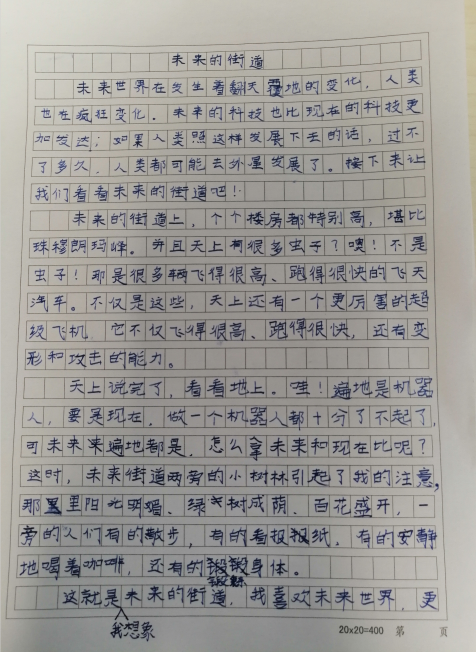 未来的街道
未来世界在发生着翻天覆地的变化，人类
也在疯狂变化。未来的科技也比现在的科技更
加发达；如果人类照这样发展下去的话，过不
了多久，人类都可能去外星发展了。接下来让
我们看看未来的街道吧！
未来的街道上，个个楼房都特别高，堪比
珠穆朗玛峰。并且天上有很多虫子？噢！不是
虫子！那是很多辆飞得很高、跑得很快的飞天
汽车。不仅是这些，天上还有一个更厉害的超
级飞机，它不仅飞得很高、跑得很快，还有变
形和攻击的能力。
天上说完了，看看地上。哇！遍地是机器
人，要是现在，做一个机器人都十分了不起了，
可未来遍地都是，怎么拿未来和现在比呢？
这时，未来街道两旁的小树林引起了我的注意，
那里阳光明媚、绿树成荫、百花盛开，一
旁的人们有的散步，有的看报纸，有的安静
地喝着咖啡，还有的锻炼身体。
这就是我想象未来的街道，我喜欢未来世界，更
20×20=400 第 页